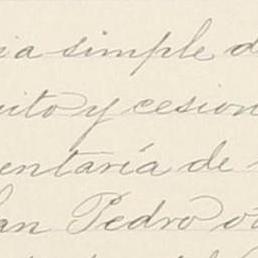 ia simple d
uito y cesion
entaría de
San Pedro o